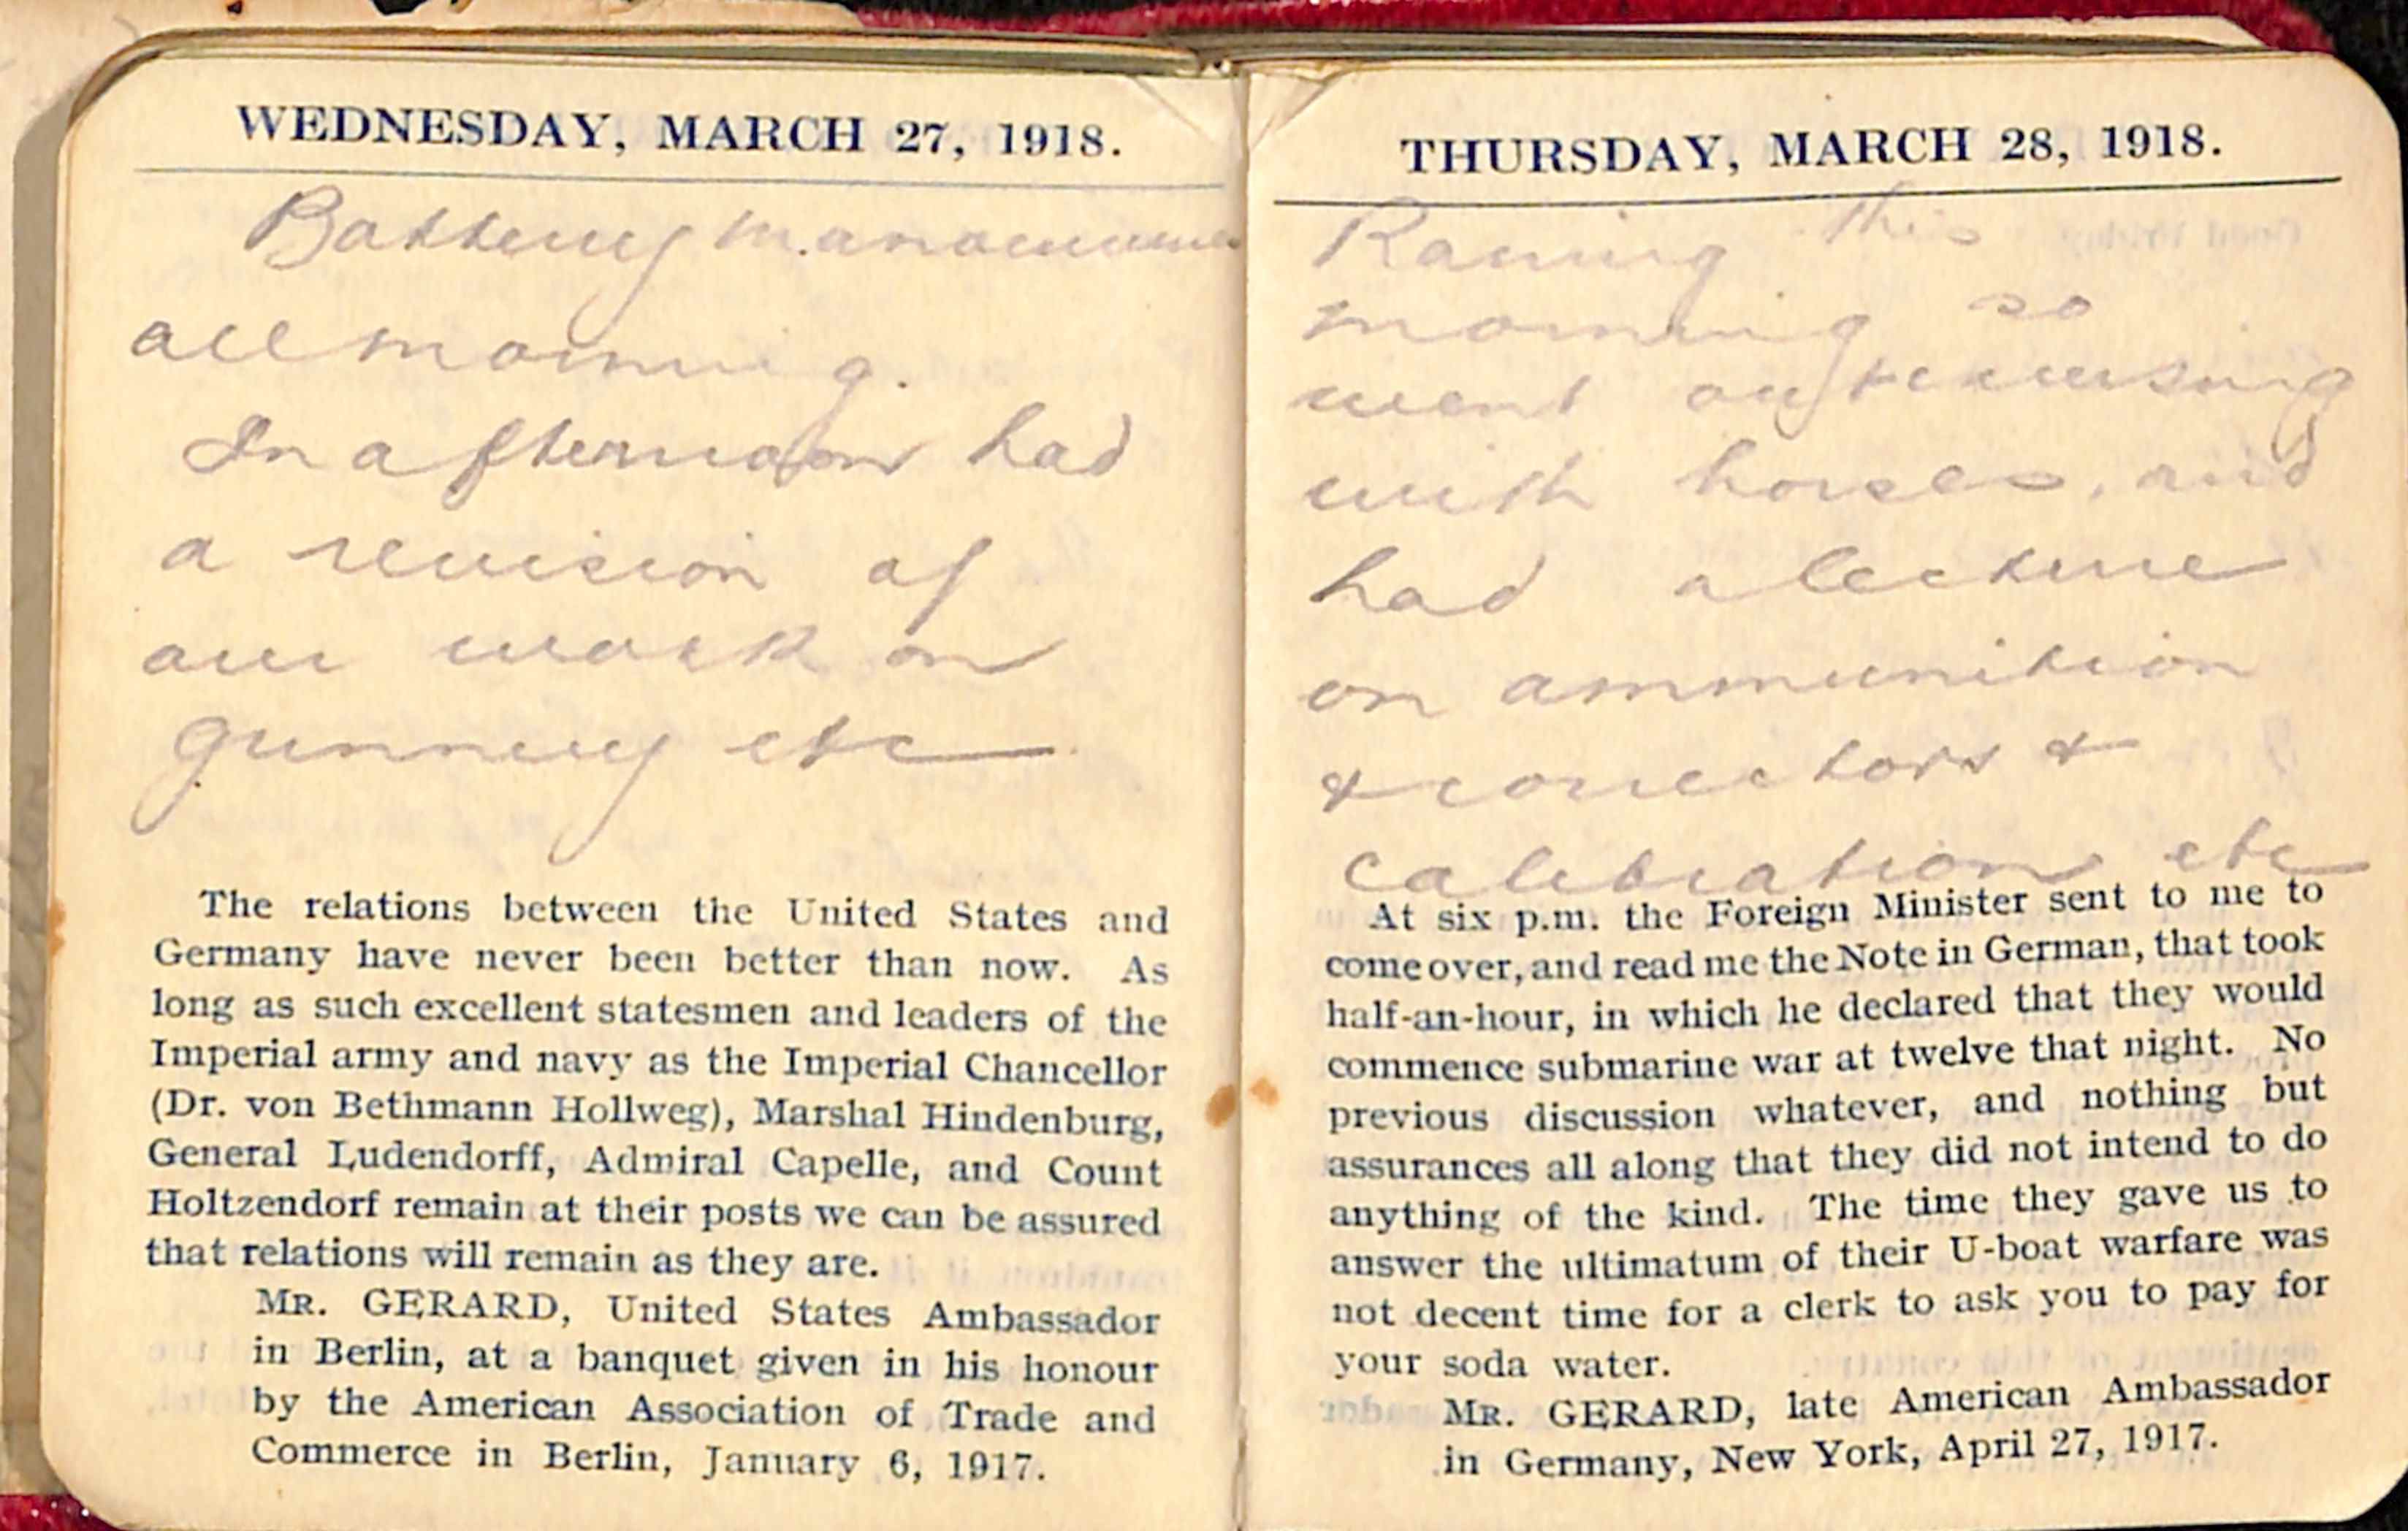 WEDNESDAY, MARCH 27, 1918.
Battery
all morning.
In afternoon had
a revision of
our work on
gunnery etc
The relations between the United States and
Germany have never been better than now. As
long as such excellent statesmen and leaders of the
Imperial army and navy as the Imperial Chancellor
(Dr. von Bethmann Hollweg), Marshal Hindenburg,
General Ludendorff, Admiral Capelle, and Count
Holtzendorf remain at their posts we can be assured
that relations will remain as they are.
MR. GERARD, United States Ambassador
in Berlin, at a banquet given in his honour
by the American Association of Trade and
Commerce in Berlin, January 6, 1917.
THURSDAY, MARCH 28, 1918.
Raining this
morning so
went out exercising
with horses, and
had a lecture
on ammunition
& correctors &
calibration etc
At six p.m. the Foreign Minister sent to me to
come over, and read me the Note in German, that took
half-an-hour, in which he declared that they would
commence submarine war at twelve that night. No
previous discussion whatever, and nothing but
assurances all along that they did not intend to do
anything of the kind. The time they gave us to
answer the ultimatum of their U-boat warfare was
not decent time for a clerk to ask you to pay for
your soda water.
MR. GERARD, late American Ambassador
in Germany, New York, April 27, 1917.